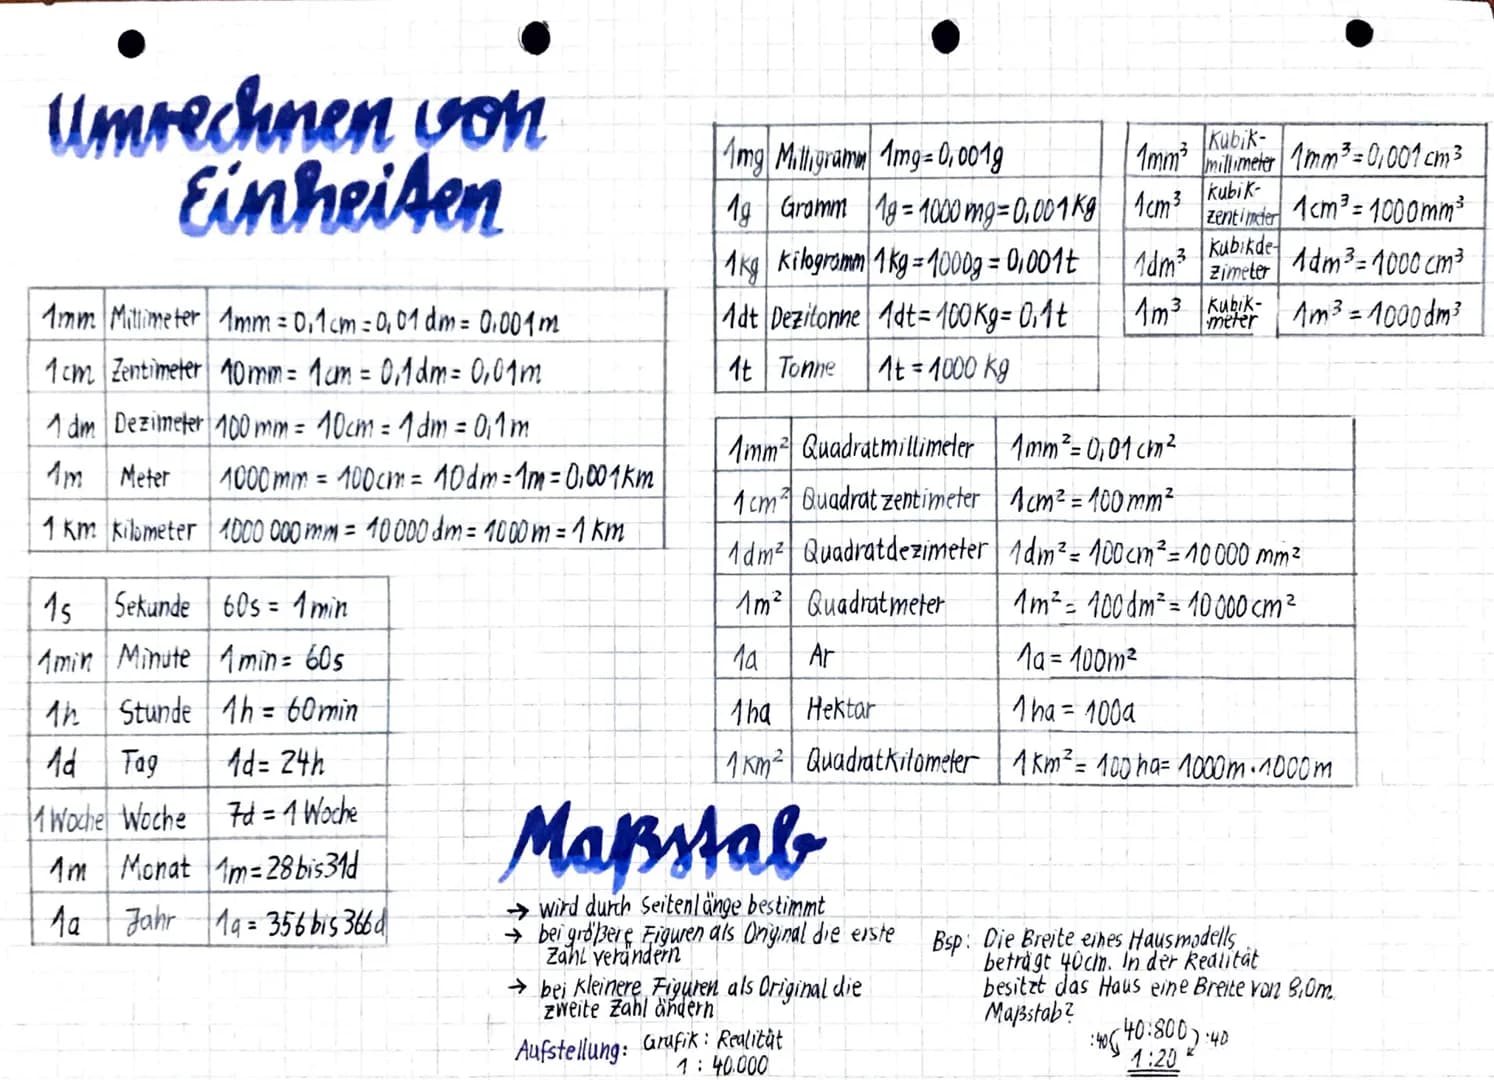 Umrechnen von
Einheiten
1mm Millimeter 1mm = 0,1cm = 0,01dm = 0,001m
1cm Zentimeter 10mm = 1cm = 0,1dm = 0,01m
1dm Dezimeter 100mm = 10cm = 1dm = 0,1m
1m Meter 1000mm = 100cm = 10dm = 1m = 0,001km
1km Kilometer 1000 000mm = 10000dm = 1000m = 1km
1s Sekunde 60s = 1min
1min Minute 1min = 60s
1h Stunde 1h = 60min
1d Tag 1d = 24h
1Woche Woche 7d = 1Woche
1m Monat 1m = 28 bis 31d
1a Jahr 1a = 356 bis 366d
1mg Milligramm 1mg = 0,001g
1g Gramm 1g = 1000mg = 0,001kg
1kg Kilogramm 1kg = 1000g = 0,001t
1dt Dezitonne 1dt = 100kg = 0,1t
1t Tonne 1t = 1000 kg
1mm³ Kubik-
millimeter 1mm³ = 0,001cm³
1cm³ Kubik-
zentimeter 1cm³ = 1000mm³
1dm³ Kubikde-
zimeter 1dm³ = 1000cm³
1m³ Kubik-
meter 1m³ = 1000dm³
1mm² Quadratmillimeter 1mm² = 0,01cm²
1cm² Quadratzentimeter 1cm² = 100mm²
1dm² Quadratdezimeter 1dm² = 100cm² = 10000 mm²
1m² Quadratmeter 1m² = 100dm² = 10000cm²
1a Ar 1a = 100m²
1ha Hektar 1ha = 100a
1km² Quadratkilometer 1km² = 100ha = 1000m · 1000m
Maßstab
→ wird durch Seitenlänge bestimmt
→ bei größere Figuren als Original die erste
Zahl verändern
→ bei kleinere Figuren als Original die
zweite Zahl ändern
Aufstellung: Grafik : Realität
1 : 40.000
Bsp: Die Breite eines Hausmodells
beträgt 40cm. In der Realität
besitzt das Haus eine Breite von 8,0m.
Maßstab?
:40 40:800 :40
1:20